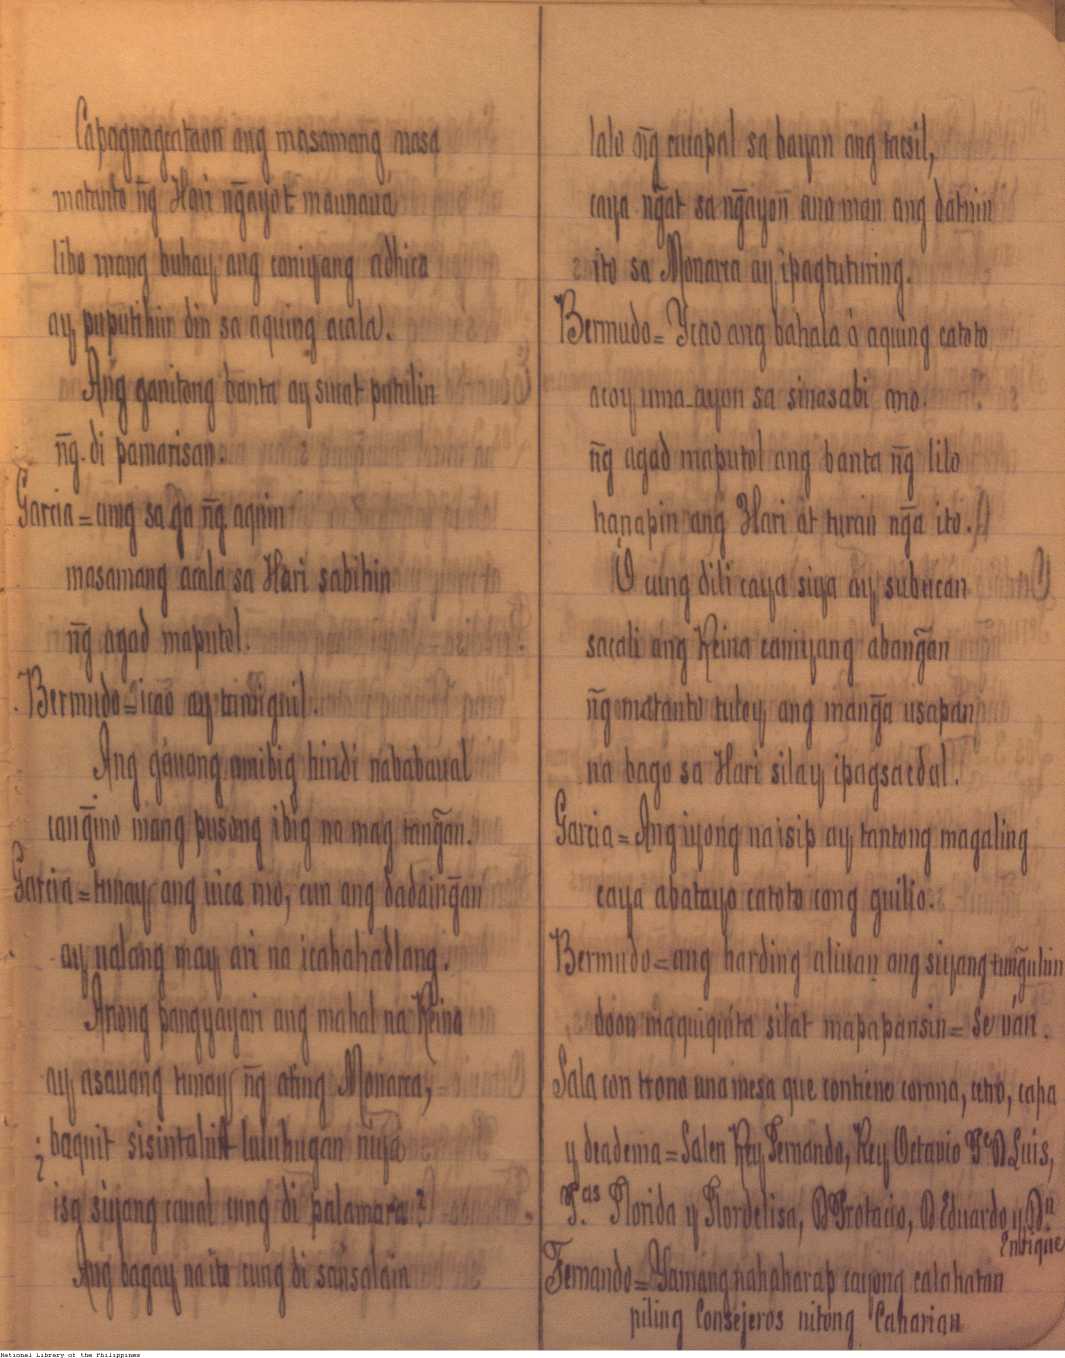 Capagnagcataon ang masamang nasa
matanto n͠g Hari n͠gayo't maunaua
libo mang buhay ang caniyang adhica
ay puputihin din sa aquing acala.
Ang ganitong banta ay sucat putilin
n͠g di pamarisan.
Garcia = cung sa ga n͠g aquin
masamang acala sa Hari sabihin
n͠g agad maputol.
Bermudo = icao ay tumiguil.
Ang gauang umibig hindi nababaual
can͠gino mang pusong ibig na mag tan͠gan.
Garcia = tunay ang uica mo, cun ang dadain͠gan
ay ualang may ari na icahahadlang.
Anong pangyayari ang mahal na Reina
ay asauang tunay n͠g ating Monarca,
¿baquit sisintahin lalubugan niya
isa siyang caual cung di palamara?
Ang bagay na ito cung di sansalain
lalo n͠g cucapal sa bayan ang tacsil,
caya n͠gat sa n͠gayon ano man ang datnin
ito sa Monarca ay ipagtuturing.
Bermudo = Ycao ang bahala ó aquing catoto
acoy uma-ayon sa sinasabi mo.
n͠g agad maputol ang banta n͠g lilo
hanapin ang Hari at turan n͠ga ito.
O cung dili caya siya ay subucan
sacali ang Reina caniyang aban͠gan
n͠g matanto tuloy ang man͠ga usapan
na bago sa Hari silay ipagsacdal.
Garcia = Ang iyong naisip ay tantong magaling
caya abatayo catoto cong guilio.
Bermudo = ang harding aliuan ang siyang tun͠guhin
doon maquiquita silat mapapansin = Se ván.
Sala con trono una mesa que contiene corona, cetro, capa
y deadema = Salen Rey Fernando, Rey Octavio Pe D Luis,
P.as Florida y Flordelisa, D Protacio, D Eduardo y D.n
Enrique
Fernando = Yamang nahaharap cayong calahatan
piling Consejeros nitong Caharian
National Library of the Philippines